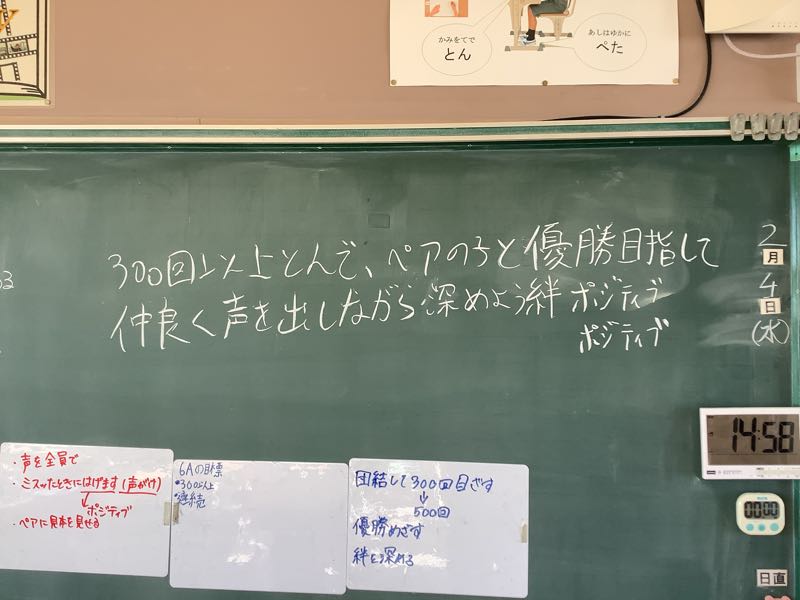 かみをてで
とん
あしはゆかに
ぺた
300回以上とんで、ペアの子と優勝目指して
仲良く声を出しながら深めよう絆 ポジティブ
ポジティブ
2
月
4
日
(水)
14:58
00:00
日直
・声を全員で
・ミスったときにはげます(声がけ)
ポジティブ
・ペアに見本を見せる
6Aの目標
・300以上
・継続
団結して300回目ざす
↓
500回
優勝めざす
絆を深める